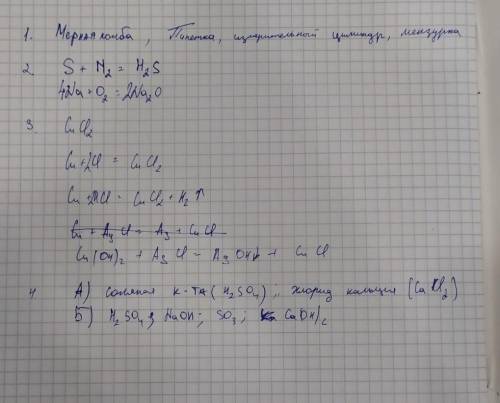 1. Мерная колба, Пипетка, измерительный цилиндр, мензурка
2. S + H₂ = H₂S
4Na + O₂ = 2Na₂O
3. CuCl₂
Cu + 2Cl = CuCl₂
Cu 2HCl = CuCl₂ + H₂↑
Cu + AgCl = Ag + CuCl
Cu(OH)₂ + AgCl = AgOH + CuCl
4. А) соляная к-та (H₂SO₄); хлорид кальция (CaCl₂)
Б) H₂SO₄; NaOH; SO₃; Ca(OH)₂